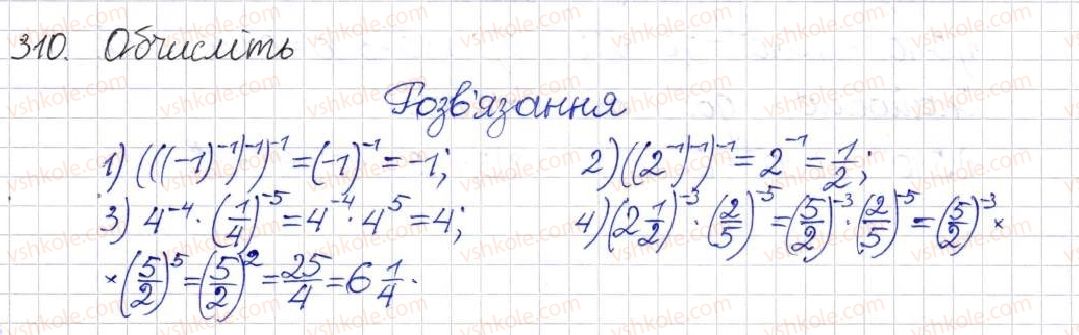 310. Обчисліть
Розв'язання
1) (((-1)⁻¹)⁻¹)⁻¹ = (-1)⁻¹ = -1; 2) ((2⁻¹)⁻¹)⁻¹ = 2⁻¹ = 1/2;
3) 4⁻⁴ · (1/4)⁻⁵ = 4⁻⁴ · 4⁵ = 4; 4) (2 1/2)⁻³ · (2/5)⁻⁵ = (5/2)⁻³ · (2/5)⁻⁵ = (5/2)⁻³ ×
× (5/2)⁵ = (5/2)² = 25/4 = 6 1/4.